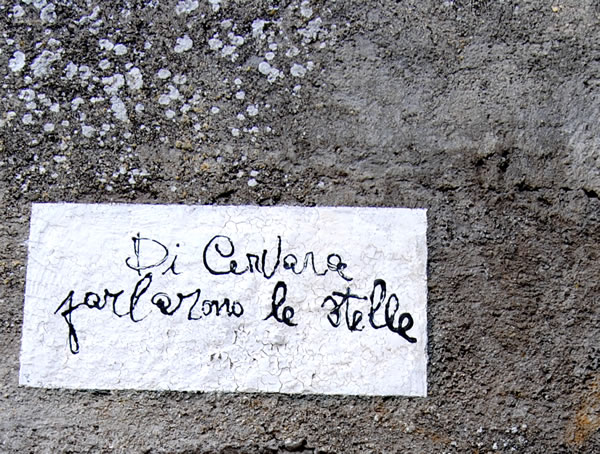 Di Cervara
parlarono le stelle